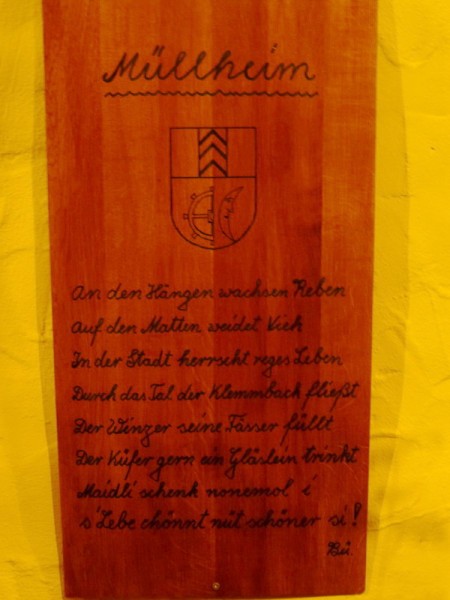 Müllheim
An den Hängen wachsen Reben
Auf den Matten weidet Vieh
In der Stadt herrscht reges Leben
Durch das Tal der Klemmbach fließt
Der Winzer seine Fässer füllt
Der Küfer gern ein Gläslein trinkt
Maidli schenk nonemol i
s'Lebe chönnt nüt schöner si!